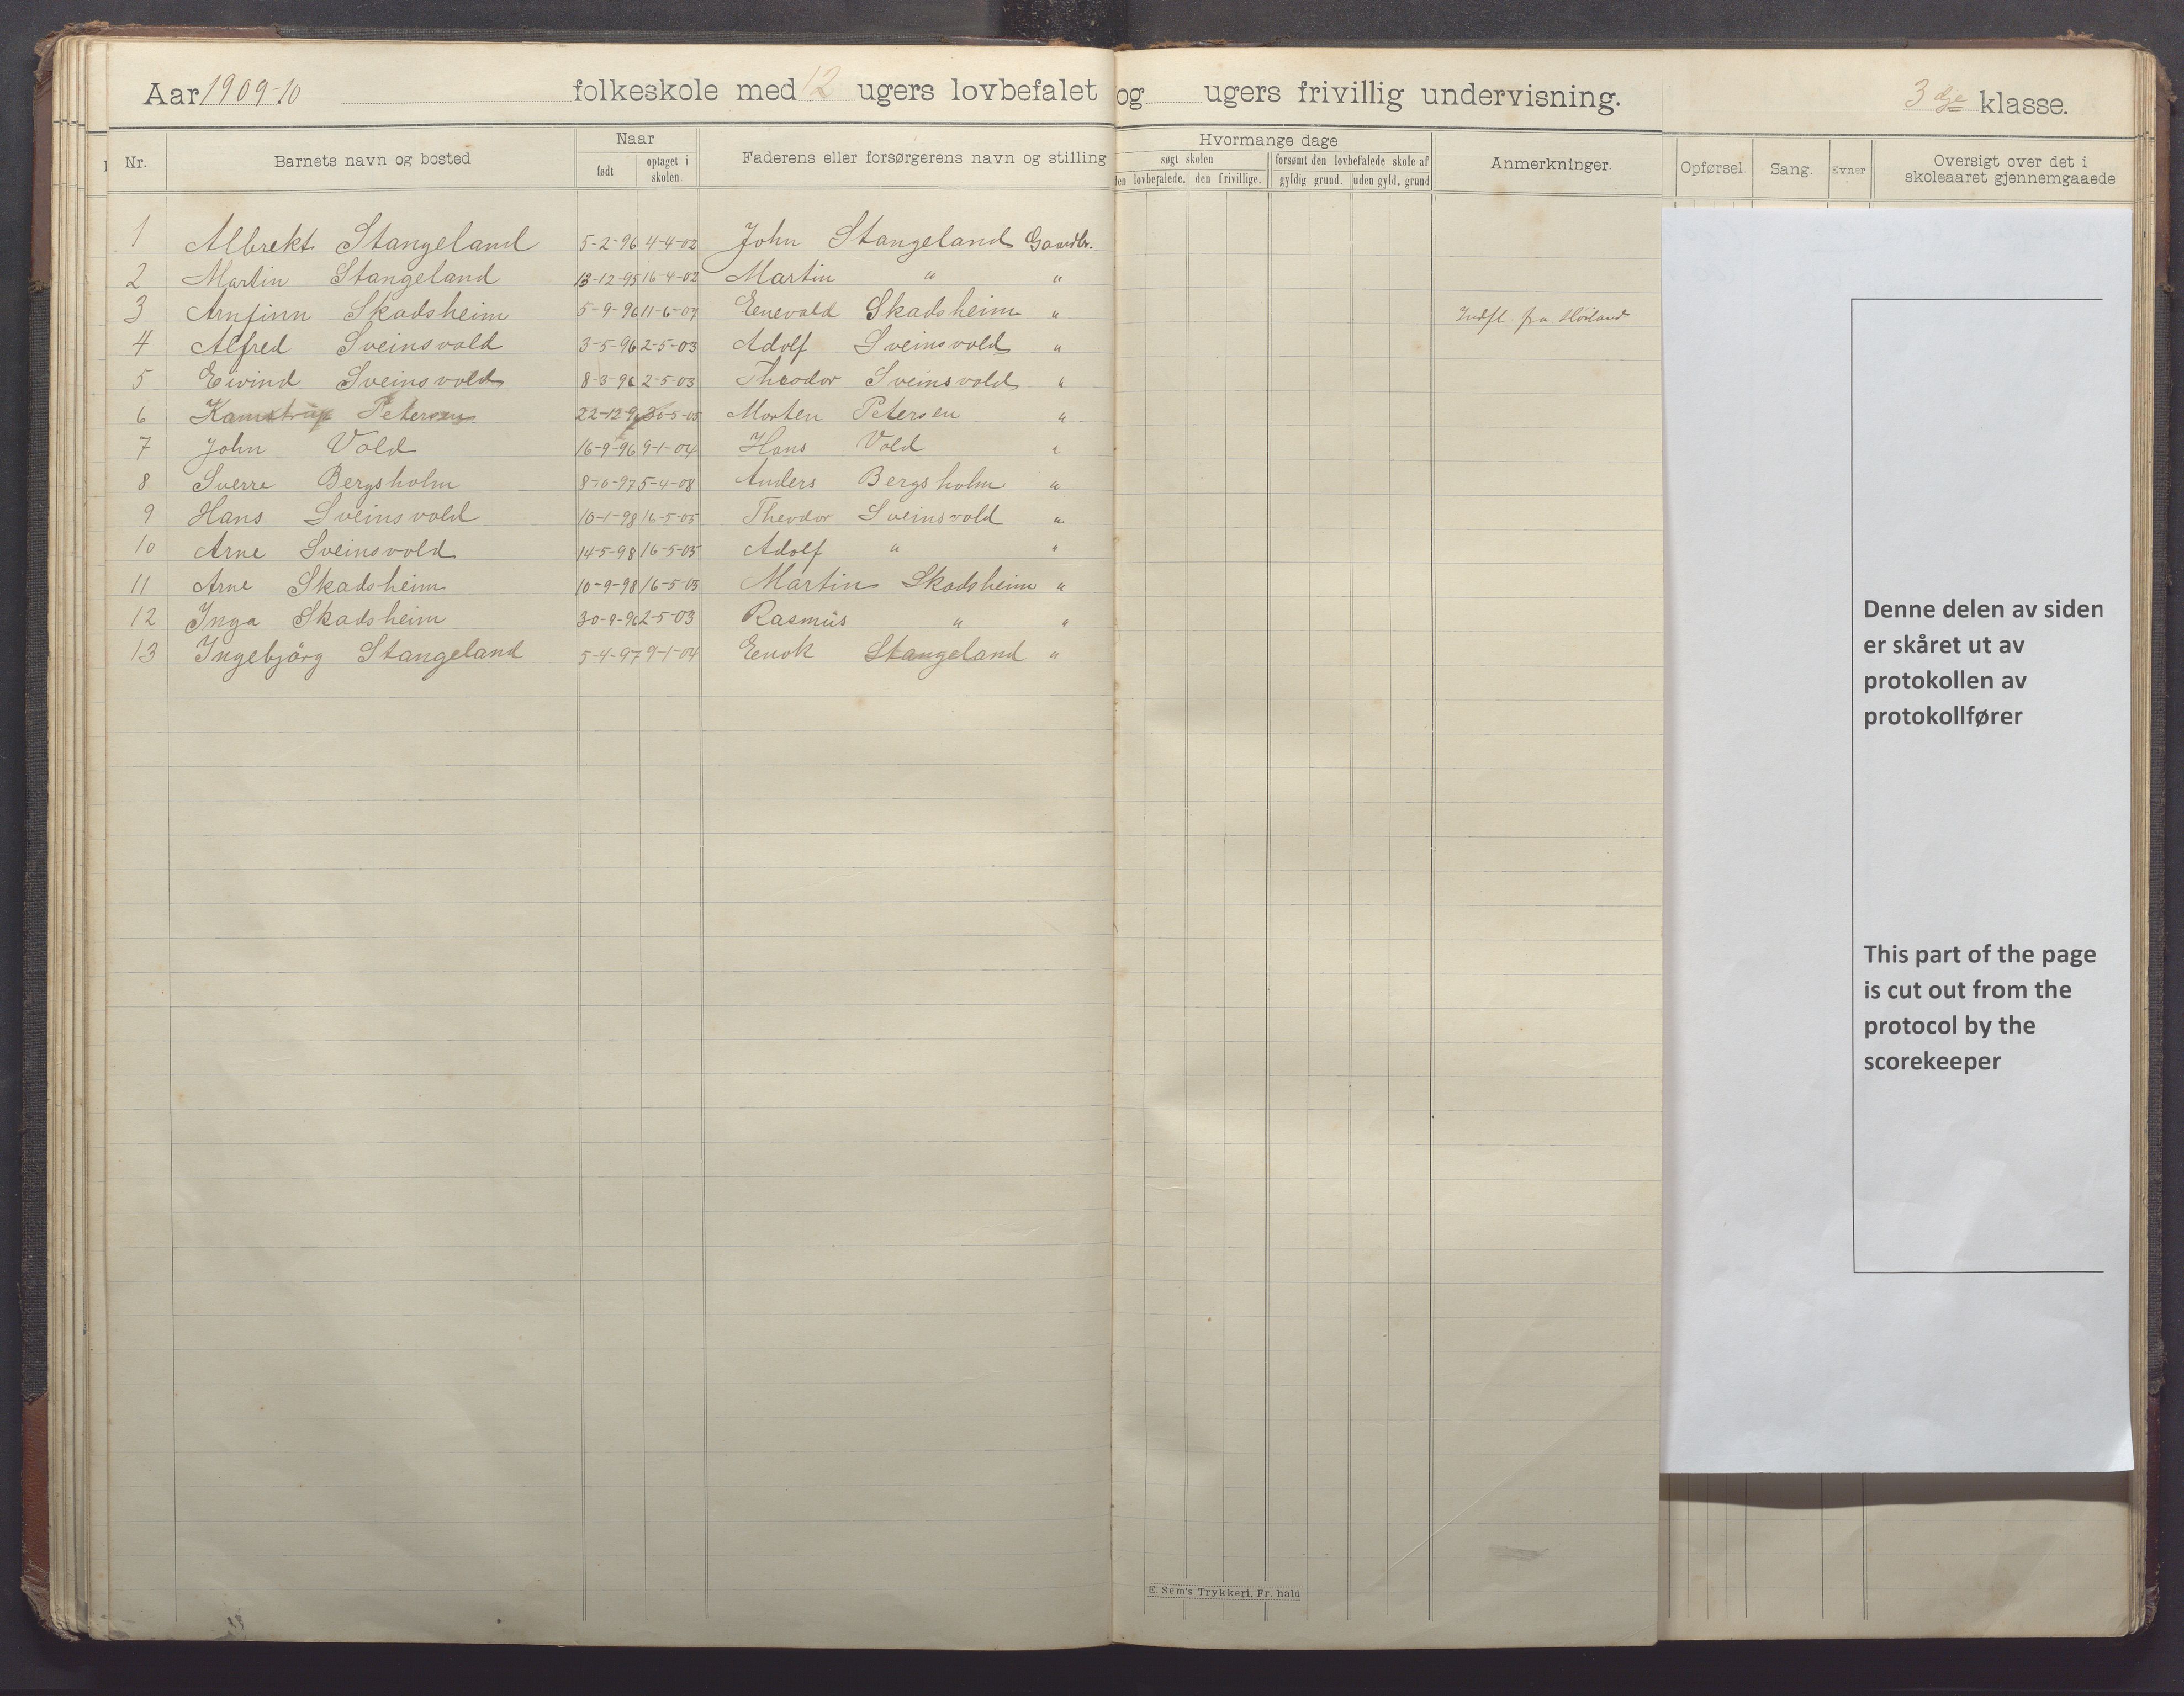 Aar 1909-10 folkeskole med 12 ugers lovbefalet og ugers frivillig undervisning. 3dje klasse.
Nr. Barnets navn og bosted Naar Faderens eller forsørgerens navn og stilling Hvormange dage Anmerkninger. Opførsel. Sang. Evner Oversigt over det i skoleaaret gjennemgaaede
født optaget i skolen. søgt skolen forsømt den lovbefalede skole af
den lovbefalede. den frivillige. gyldig grund. uden gyld. grund
1 Albrekt Stangeland 5-2-96 4-4-02 John Stangeland Gaardbr.
2 Martin Stangeland 13-12-95 16-4-02 Martin " "
3 Arnfinn Skadsheim 5-9-96 11-6-07 Enevald Skadsheim " Indfl. fra Hörland
4 Alfred Sveinsvold 3-5-96 2-5-03 Adolf Sveinsvold "
5 Eivind Sveinsvold 8-3-96 2-5-03 Theodor Sveinsvold "
6 Kamstrup Petersen 22-12-96 30-5-05 Morten Petersen "
7 John Vold 16-9-96 9-1-04 Hans Vold "
8 Sverre Bergsholm 8-10-97 5-4-08 Anders Bergsholm "
9 Hans Sveinsvold 10-1-98 16-5-05 Theodor Sveinsvold "
10 Arne Sveinsvold 14-5-98 16-5-05 Adolf " "
11 Arne Skadsheim 10-9-98 16-5-05 Martin Skadsheim "
12 Inga Skadsheim 30-9-96 2-5-03 Rasmus " "
13 Ingebjörg Stangeland 5-4-97 9-1-04 Enok Stangeland "
Denne delen av siden
er skåret ut av
protokollen av
protokollfører
This part of the page
is cut out from the
protocol by the
scorekeeper
E. Sem's Trykkeri, Fr. hald